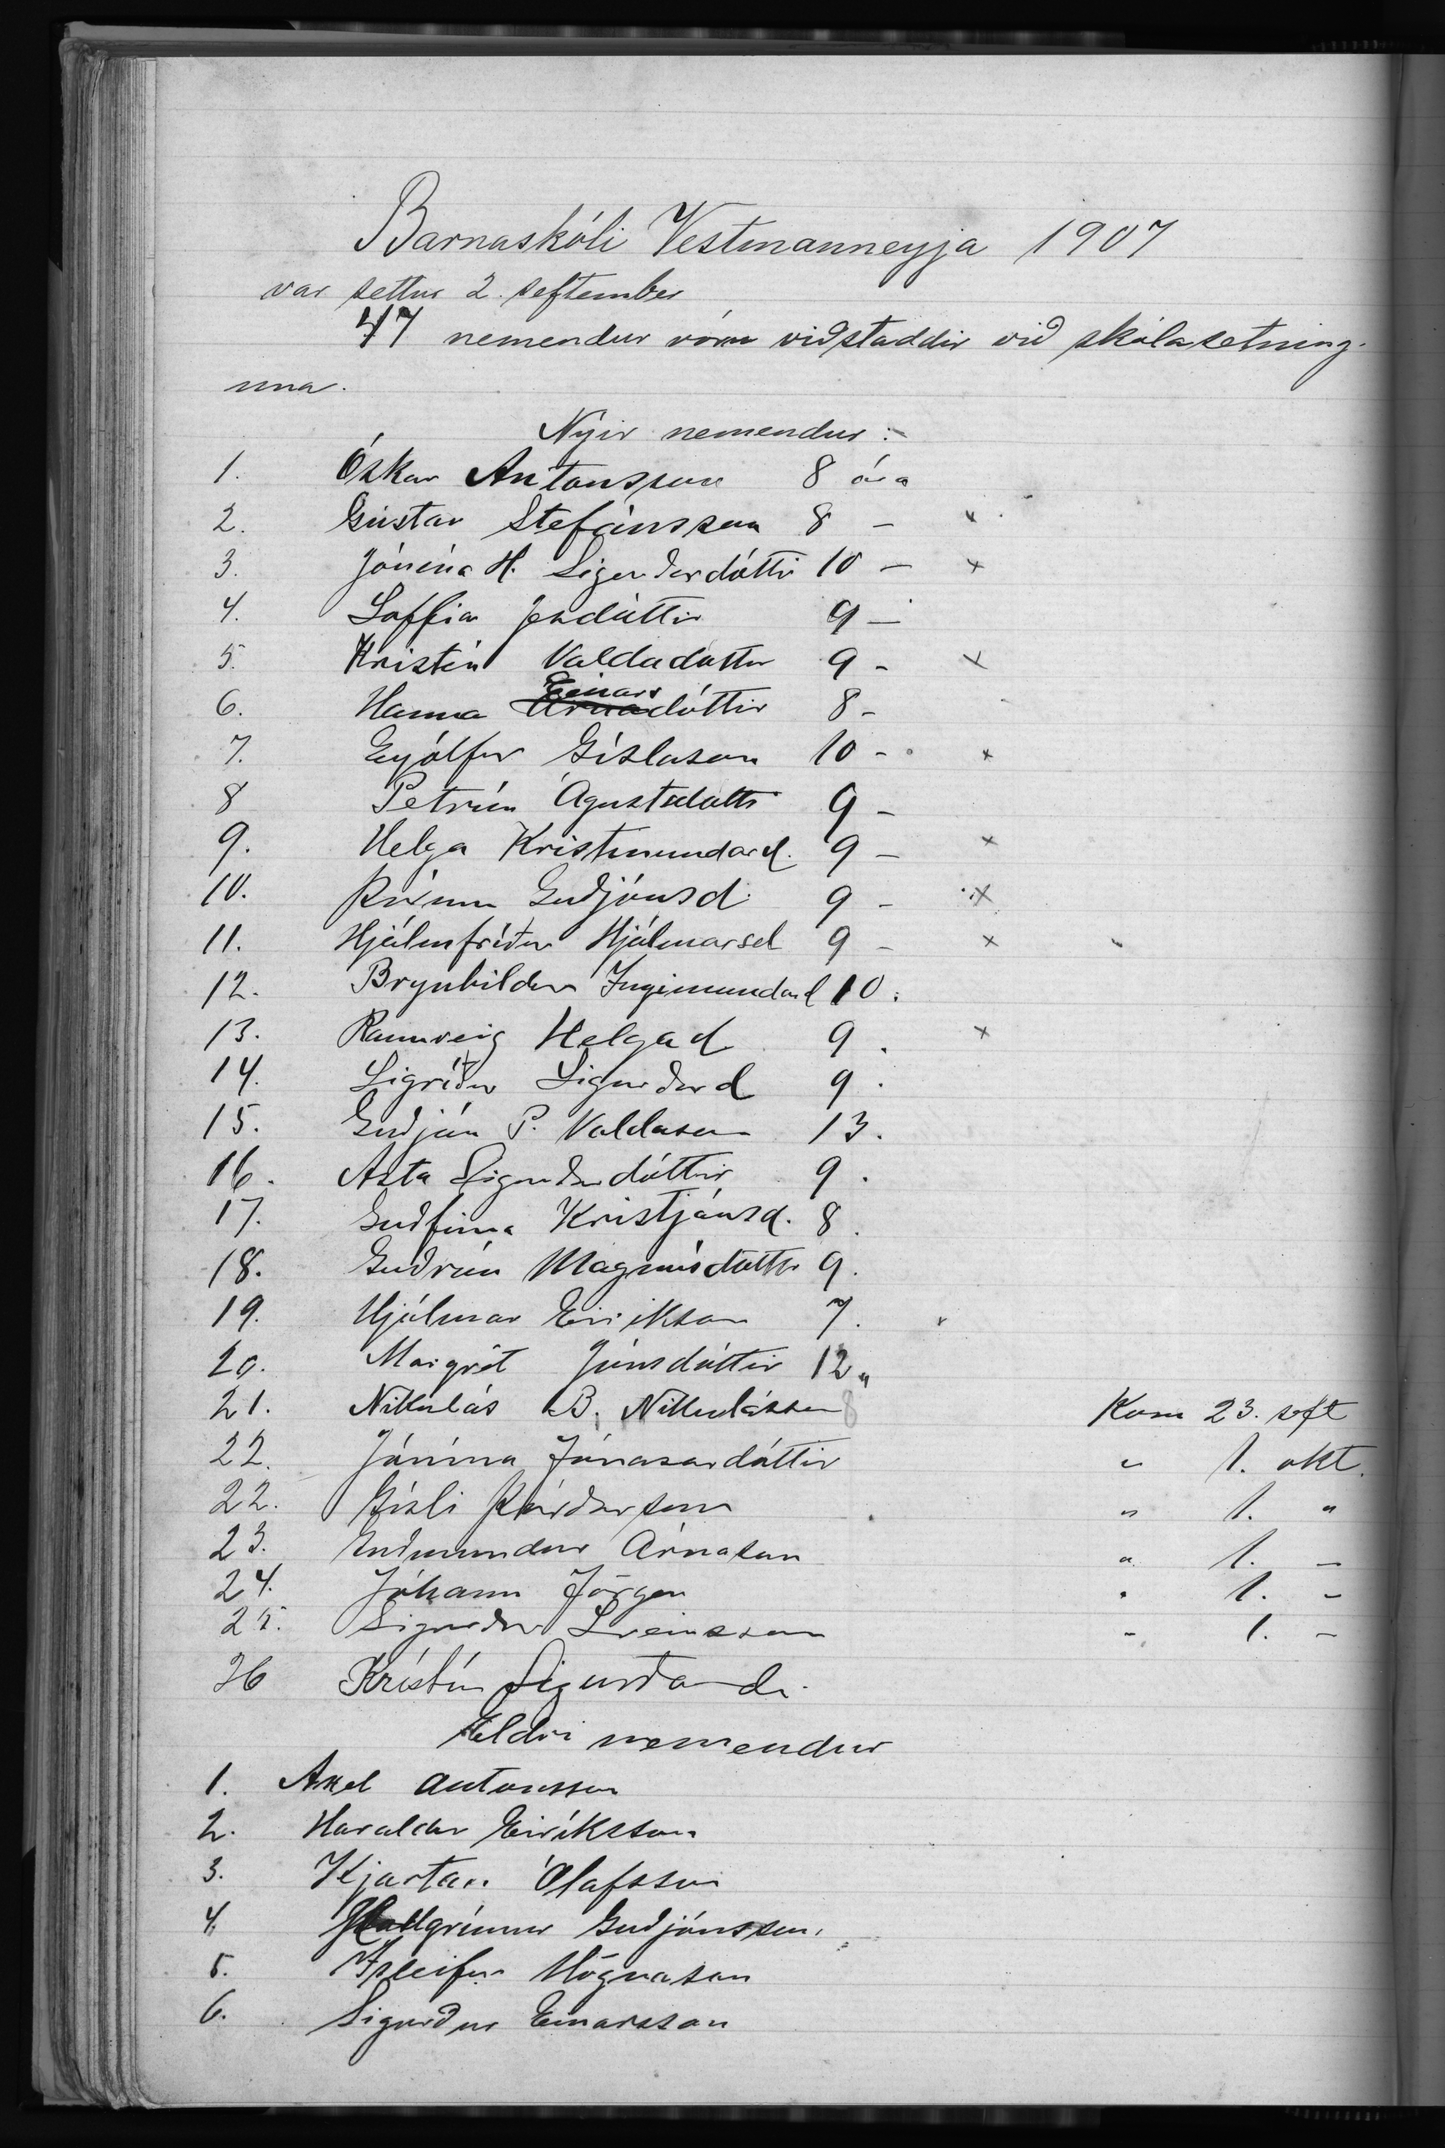 Barnaskóli Vestmanneyja 1907
var settur 2. september
47 nemendur vóru viðstaddir við skólasetning-
una.
Nýir nemendur :
1. Óskar Antonsson 8 ára
2. Gústav Stefánsson 8 – x
3. Jónína H. Sigurðardóttir 10 – x
4. Soffía Jesdóttir 9 –
5. Kristín Valdadóttir 9 – x
6. Hanna Einars Árnadóttir 8 –
7. Eyjólfur Gíslason 10 – x
8 Petrún Ágústsdóttir 9 –
9. Helga Kristmundard. 9 – x
10. Þórunn Guðjónsd. 9 – x
11. Hjálmfríður Hjálmarsd 9 – x
12. Brynhildur Ingimundard 10.
13. Rannveig Helgad 9. x
14. Sigríður Sigurðard 9.
15. Guðjón P. Valdason 13.
16. Asta Sigurðardóttir 9.
17. Guðfinna Kristjánsd. 8.
18. Guðrún Magnúsdóttir 9.
19. Hjálmar Eiríksson 7.
20. Margrét Jónsdóttir 12 „
21. Nikulás B. Nikulásson 8 Kom 23. sept
22. Jónína Jónasardóttir " 1. okt.
22. Gísli Þórðarson " 1. "
23. Guðmundur Árnason " 1. –
24. Jóhann Jörgen " 1. –
25. Sigurður Sveinsson – 1. –
26 Kristín Sigurðard.
Eldri nemendur
1. Axel Antonsson
2. Haraldur Eiríksson
3. Kjartan Ólafsson
4. Hallgrímur Guðjónsson.
5. Ísleifur Högnason
6. Sigurður Einarsson